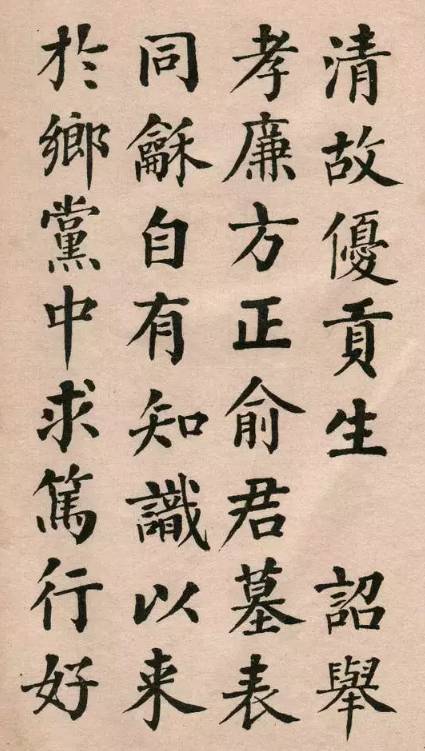 清故優貢生　詔舉
孝廉方正俞君墓表
同龢自有知識以来
於鄉黨中求篤行好